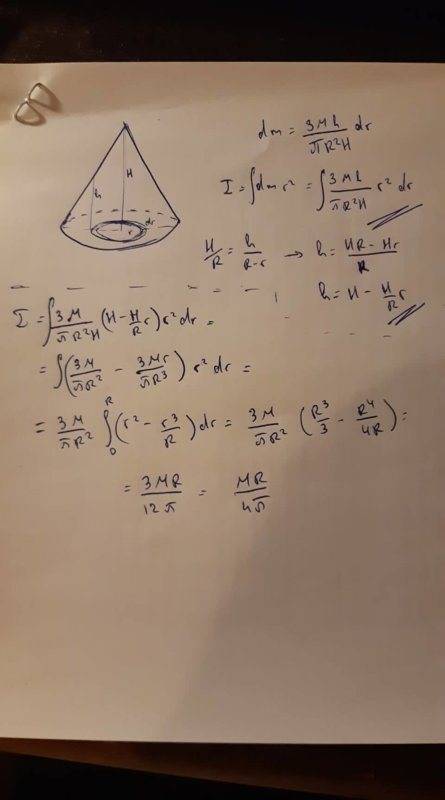 H
h
r
dr
dm = 3Mh/πR²H dr
I = ∫dm r² = ∫ 3Mh/πR²H r² dr
H/R = h/R-r → h = HR - Hr/R
h = H - H/R r
I = ∫ 3M/πR²H (H - H/R r) r² dr =
= ∫ (3M/πR² - 3Mr/πR³) r² dr =
= 3M/πR² ∫₀ᴿ (r² - r³/R) dr = 3M/πR² (R³/3 - R⁴/4R) =
= 3MR/12π = MR/4π